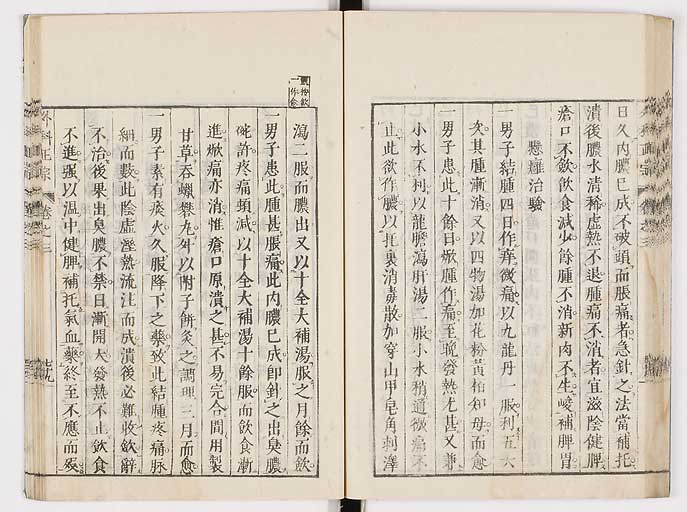 日久內膿已成不破頭而脹痛者急針之法當補托
潰後膿水清稀虛熱不退腫痛不消者宜滋陰健脾
瘡口不歛飲食減少餘腫不消新肉不生峻補脾胃
懸癰治驗
一男子結腫四日作痒微痛以九龍丹一服利五六
次其腫漸消又以四物湯加花粉黃栢知母而愈
一男子患此十餘日焮腫作痛至晚發熱尤甚又兼
小水不利以龍膽瀉肝湯二服小水稍通微痛不
止此欲作膿以托裏消毒散加穿山甲皂角刺澤
瀉二服而膿出又以十全大補湯服之月餘而飲
一男子患此腫甚脹痛此內膿已成即針之出臭膿
碗許疼痛頓減以十全大補湯十餘服而飲食漸
進焮痛亦消惟瘡口原潰之甚不易完合間用製
甘草吞蠟礬丸外以附子餅灸之調理三月而愈
一男子素有痰火久服降下之藥致此結腫疼痛脉
細而數此陰虛溼熱流注而成潰後必難收歛辭
不治後果出臭膿不禁日漸開大發熱不止飲食
不進強以溫中健脾補托氣血藥終至不應而歿
外科正宗 卷之三